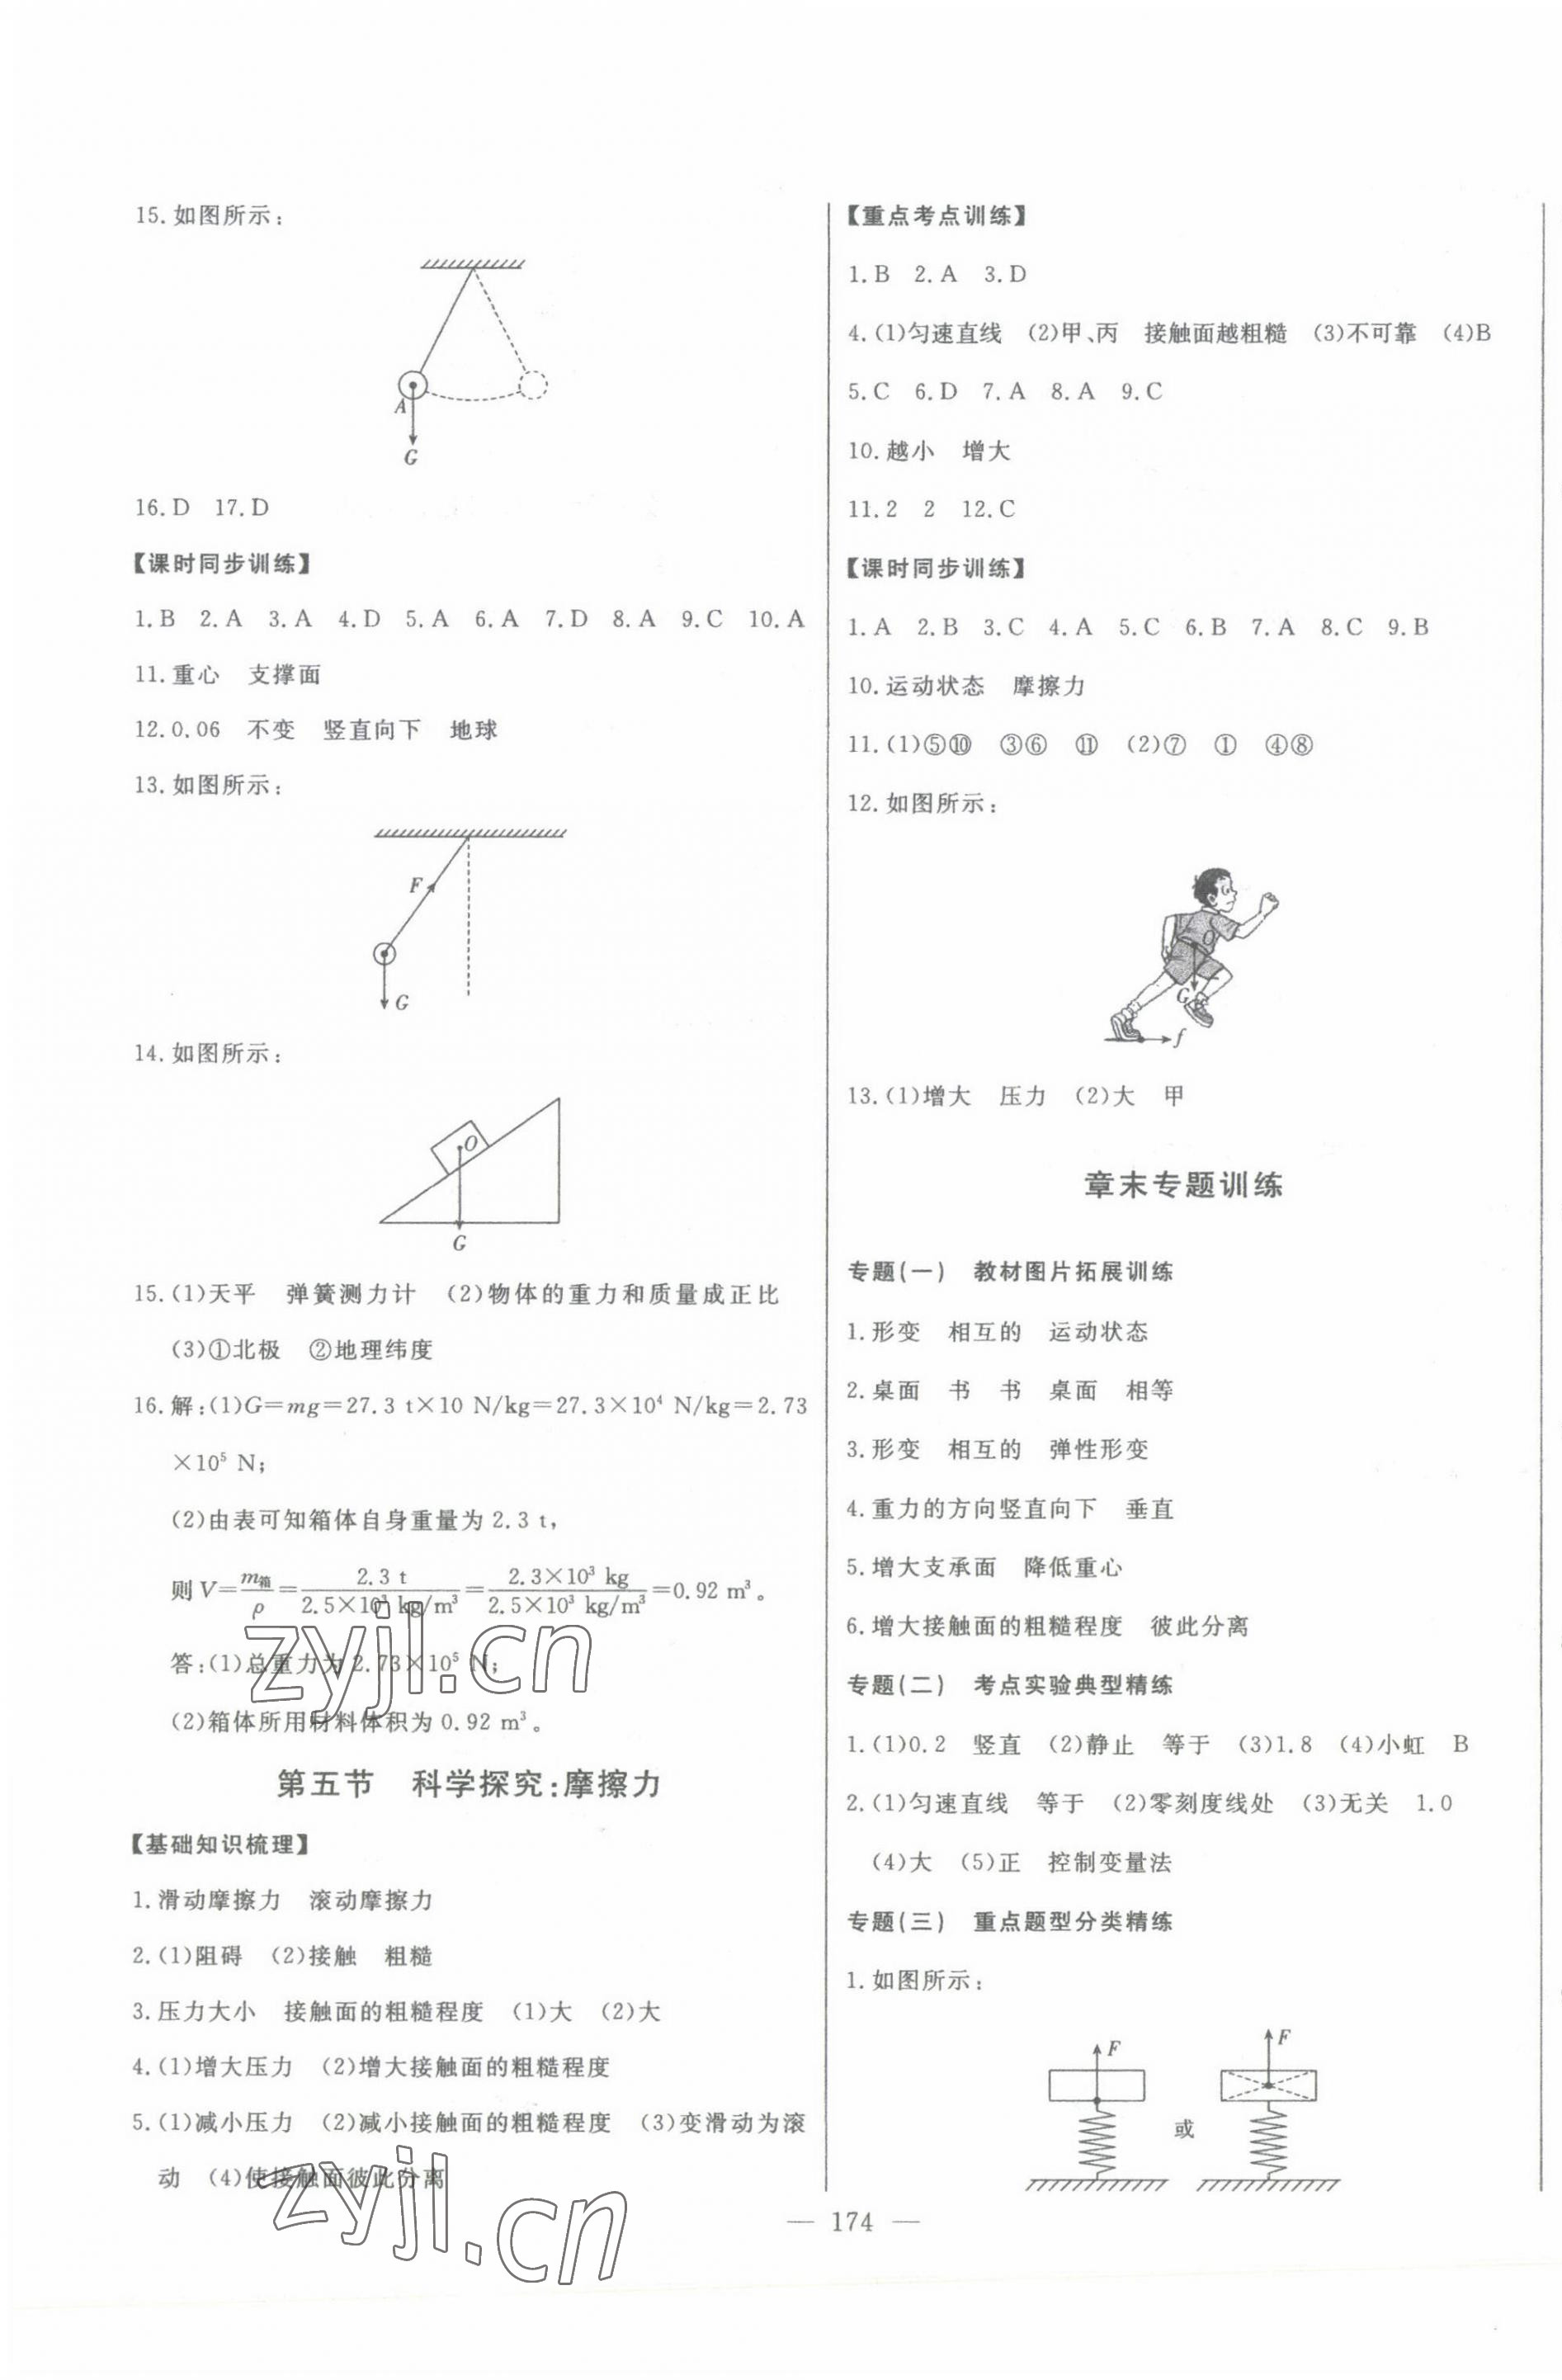 15.如图所示:
A
G
16.D 17.D
【课时同步训练】
1.B 2.A 3.A 4.D 5.A 6.A 7.D 8.A 9.C 10.A
11.重心 支撑面
12.0.06 不变 竖直向下 地球
13.如图所示:
F
G
14.如图所示:
O
G
15.(1)天平 弹簧测力计 (2)物体的重力和质量成正比
(3)①北极 ②地理纬度
16.解:(1)G=mg=27.3 t×10 N/kg=27.3×10⁴ N/kg=2.73
×10⁵ N;
(2)由表可知箱体自身重量为2.3 t,
则V=m箱/ρ=2.3 t/2.5×10³ kg/m³=2.3×10³ kg/2.5×10³ kg/m³=0.92 m³。
答:(1)总重力为2.73×10⁵ N;
(2)箱体所用材料体积为0.92 m³。
zyjl.cn
第五节 科学探究:摩擦力
【基础知识梳理】
1.滑动摩擦力 滚动摩擦力
2.(1)阻碍 (2)接触 粗糙
3.压力大小 接触面的粗糙程度 (1)大 (2)大
4.(1)增大压力 (2)增大接触面的粗糙程度
5.(1)减小压力 (2)减小接触面的粗糙程度 (3)变滑动为滚
动 (4)使接触面彼此分离
zyjl.cn
【重点考点训练】
1.B 2.A 3.D
4.(1)匀速直线 (2)甲、丙 接触面越粗糙 (3)不可靠 (4)B
5.C 6.D 7.A 8.A 9.C
10.越小 增大
11.2 2 12.C
【课时同步训练】
1.A 2.B 3.C 4.A 5.C 6.B 7.A 8.C 9.B
10.运动状态 摩擦力
11.(1)⑤⑩ ③⑥ ⑪ (2)⑦ ① ④⑧
12.如图所示:
O
G
f
13.(1)增大 压力 (2)大 甲
章末专题训练
专题(一) 教材图片拓展训练
1.形变 相互的 运动状态
2.桌面 书 书 桌面 相等
3.形变 相互的 弹性形变
4.重力的方向竖直向下 垂直
5.增大支承面 降低重心
6.增大接触面的粗糙程度 彼此分离
专题(二) 考点实验典型精练
1.(1)0.2 竖直 (2)静止 等于 (3)1.8 (4)小虹 B
2.(1)匀速直线 等于 (2)零刻度线处 (3)无关 1.0
(4)大 (5)正 控制变量法
专题(三) 重点题型分类精练
1.如图所示:
F
或
F
— 174 —